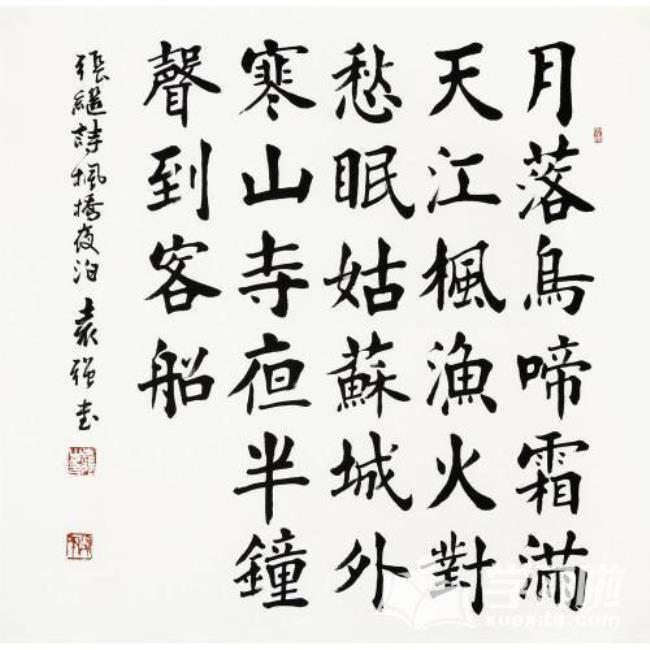 月落烏啼霜滿
天江楓漁火對
愁眠姑蘇城外
寒山寺夜半鐘
聲到客船
張繼詩楓橋夜泊 袁強書
xuexila.com